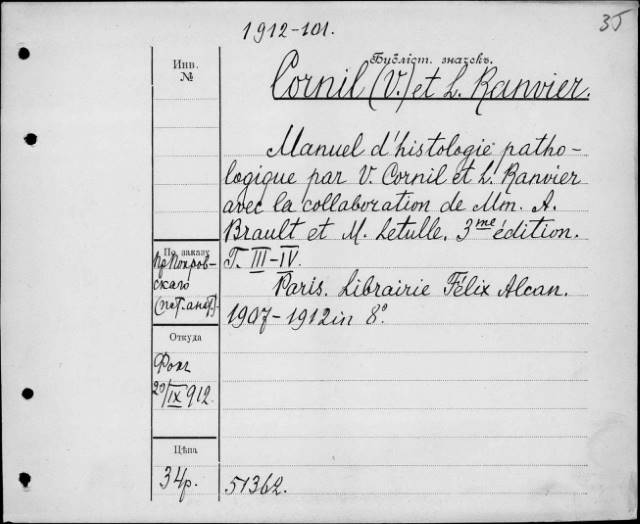 35
1912-101.
Инв.
№
Бубліст. значекъ.
Cornil (V.) et L. Ranvier.
Manuel d'histologie patho-
logique par V. Cornil et L. Ranvier
avec la collaboration de Mm. A.
Brault et M. Letulle. 3me édition.
По заказу
пр Покров-
скаго
T. III-IV.
Paris. Librairie Félix Alcan.
1907-1912 in 8°.
Откуда
20/IX 912.
Цѣна
34р.
51362.